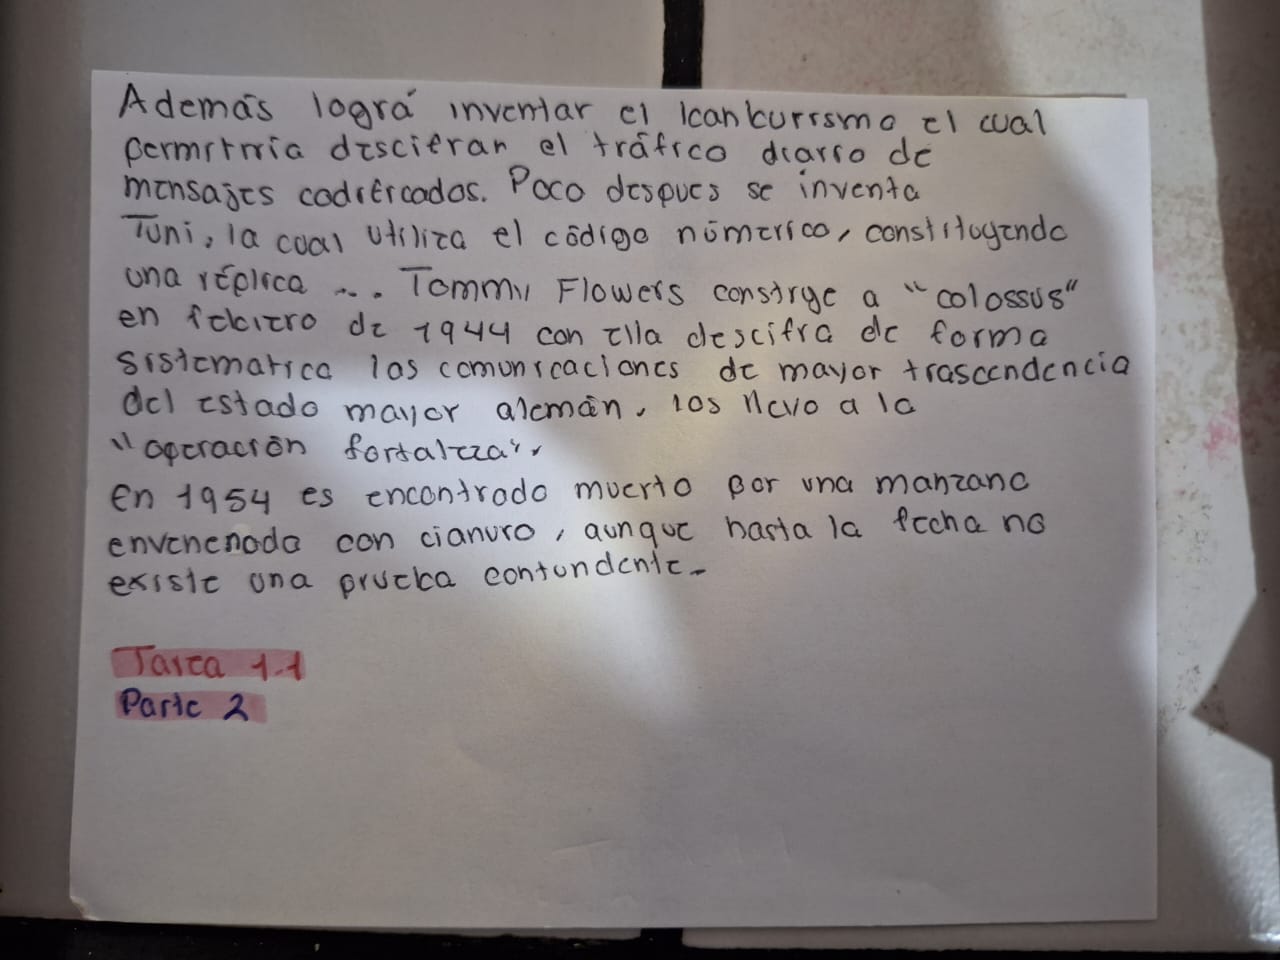 Además lográ inventar el kankurismo el cual
permitiría descifran el tráfico diario de
mensajes codificados. Poco despues se inventa
Tuni, la cual utiliza el código númerico, constituyendo
una réplica ... Tommy Flowers constrye a "colossus"
en febrero de 1944 con ella descifra de forma
sistematica las comunicaciones de mayor trascendencia
del estado mayor alemán, los llevo a la
"operación fortaleza".
En 1954 es encontrado muerto por una manzana
envenenada con cianuro, aunque hasta la fecha no
existe una prueba contundente.
Tarea 1.1
Parte 2